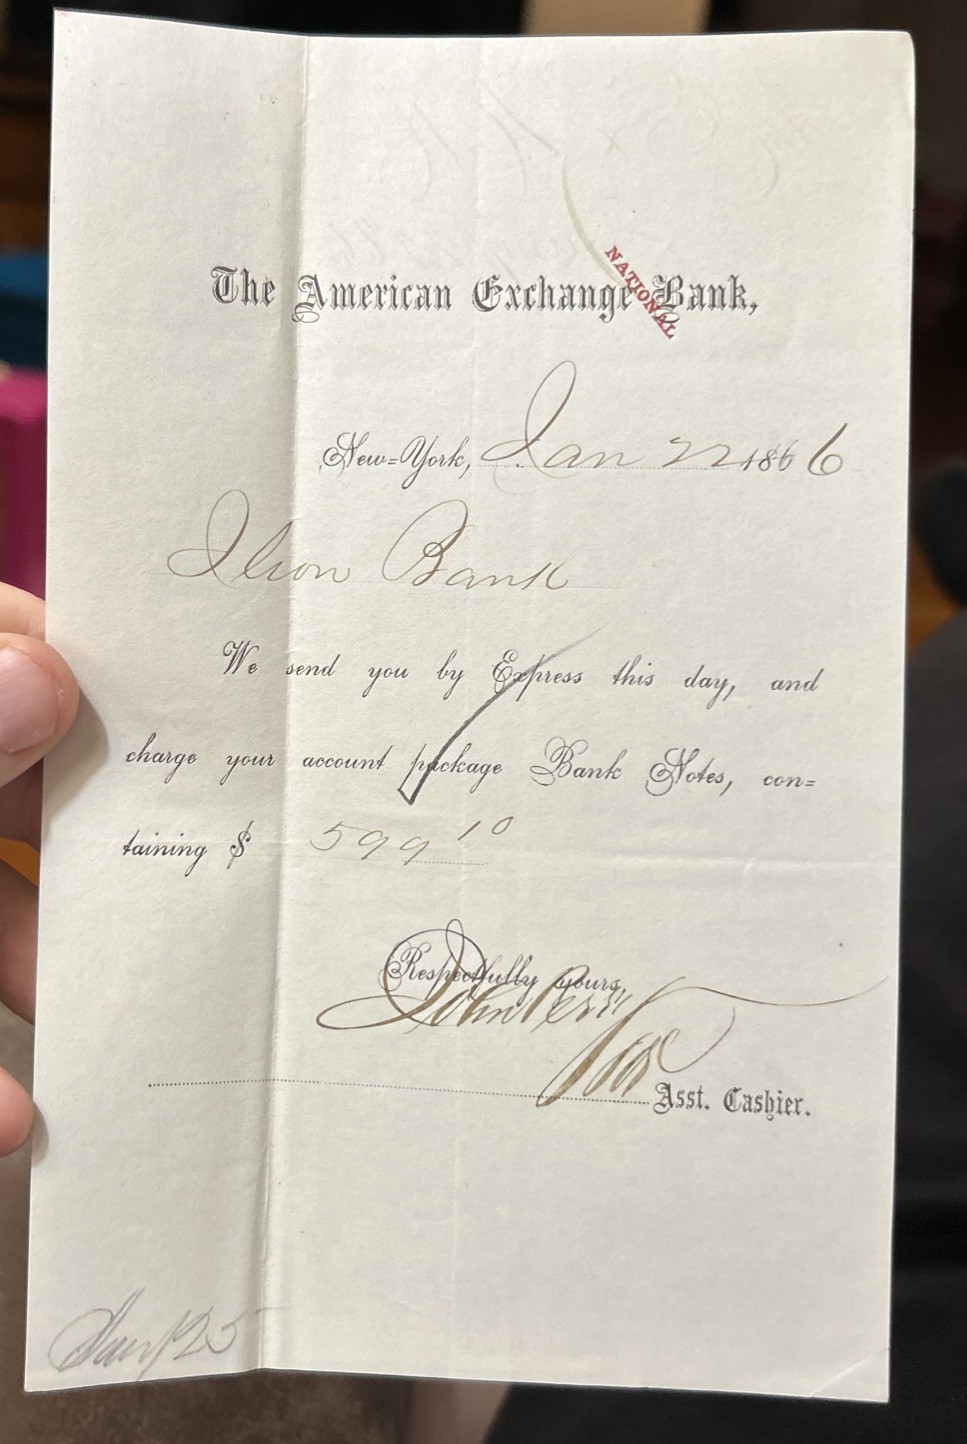 The American Exchange Bank,
NATIONAL
New=York, Jan 22 1866
Ilion Bank
We send you by Express this day, and
charge your account package Bank Notes, con=
taining $ 599 10
Respectfully yours,
John
Asst. Cashier.
Jany 25